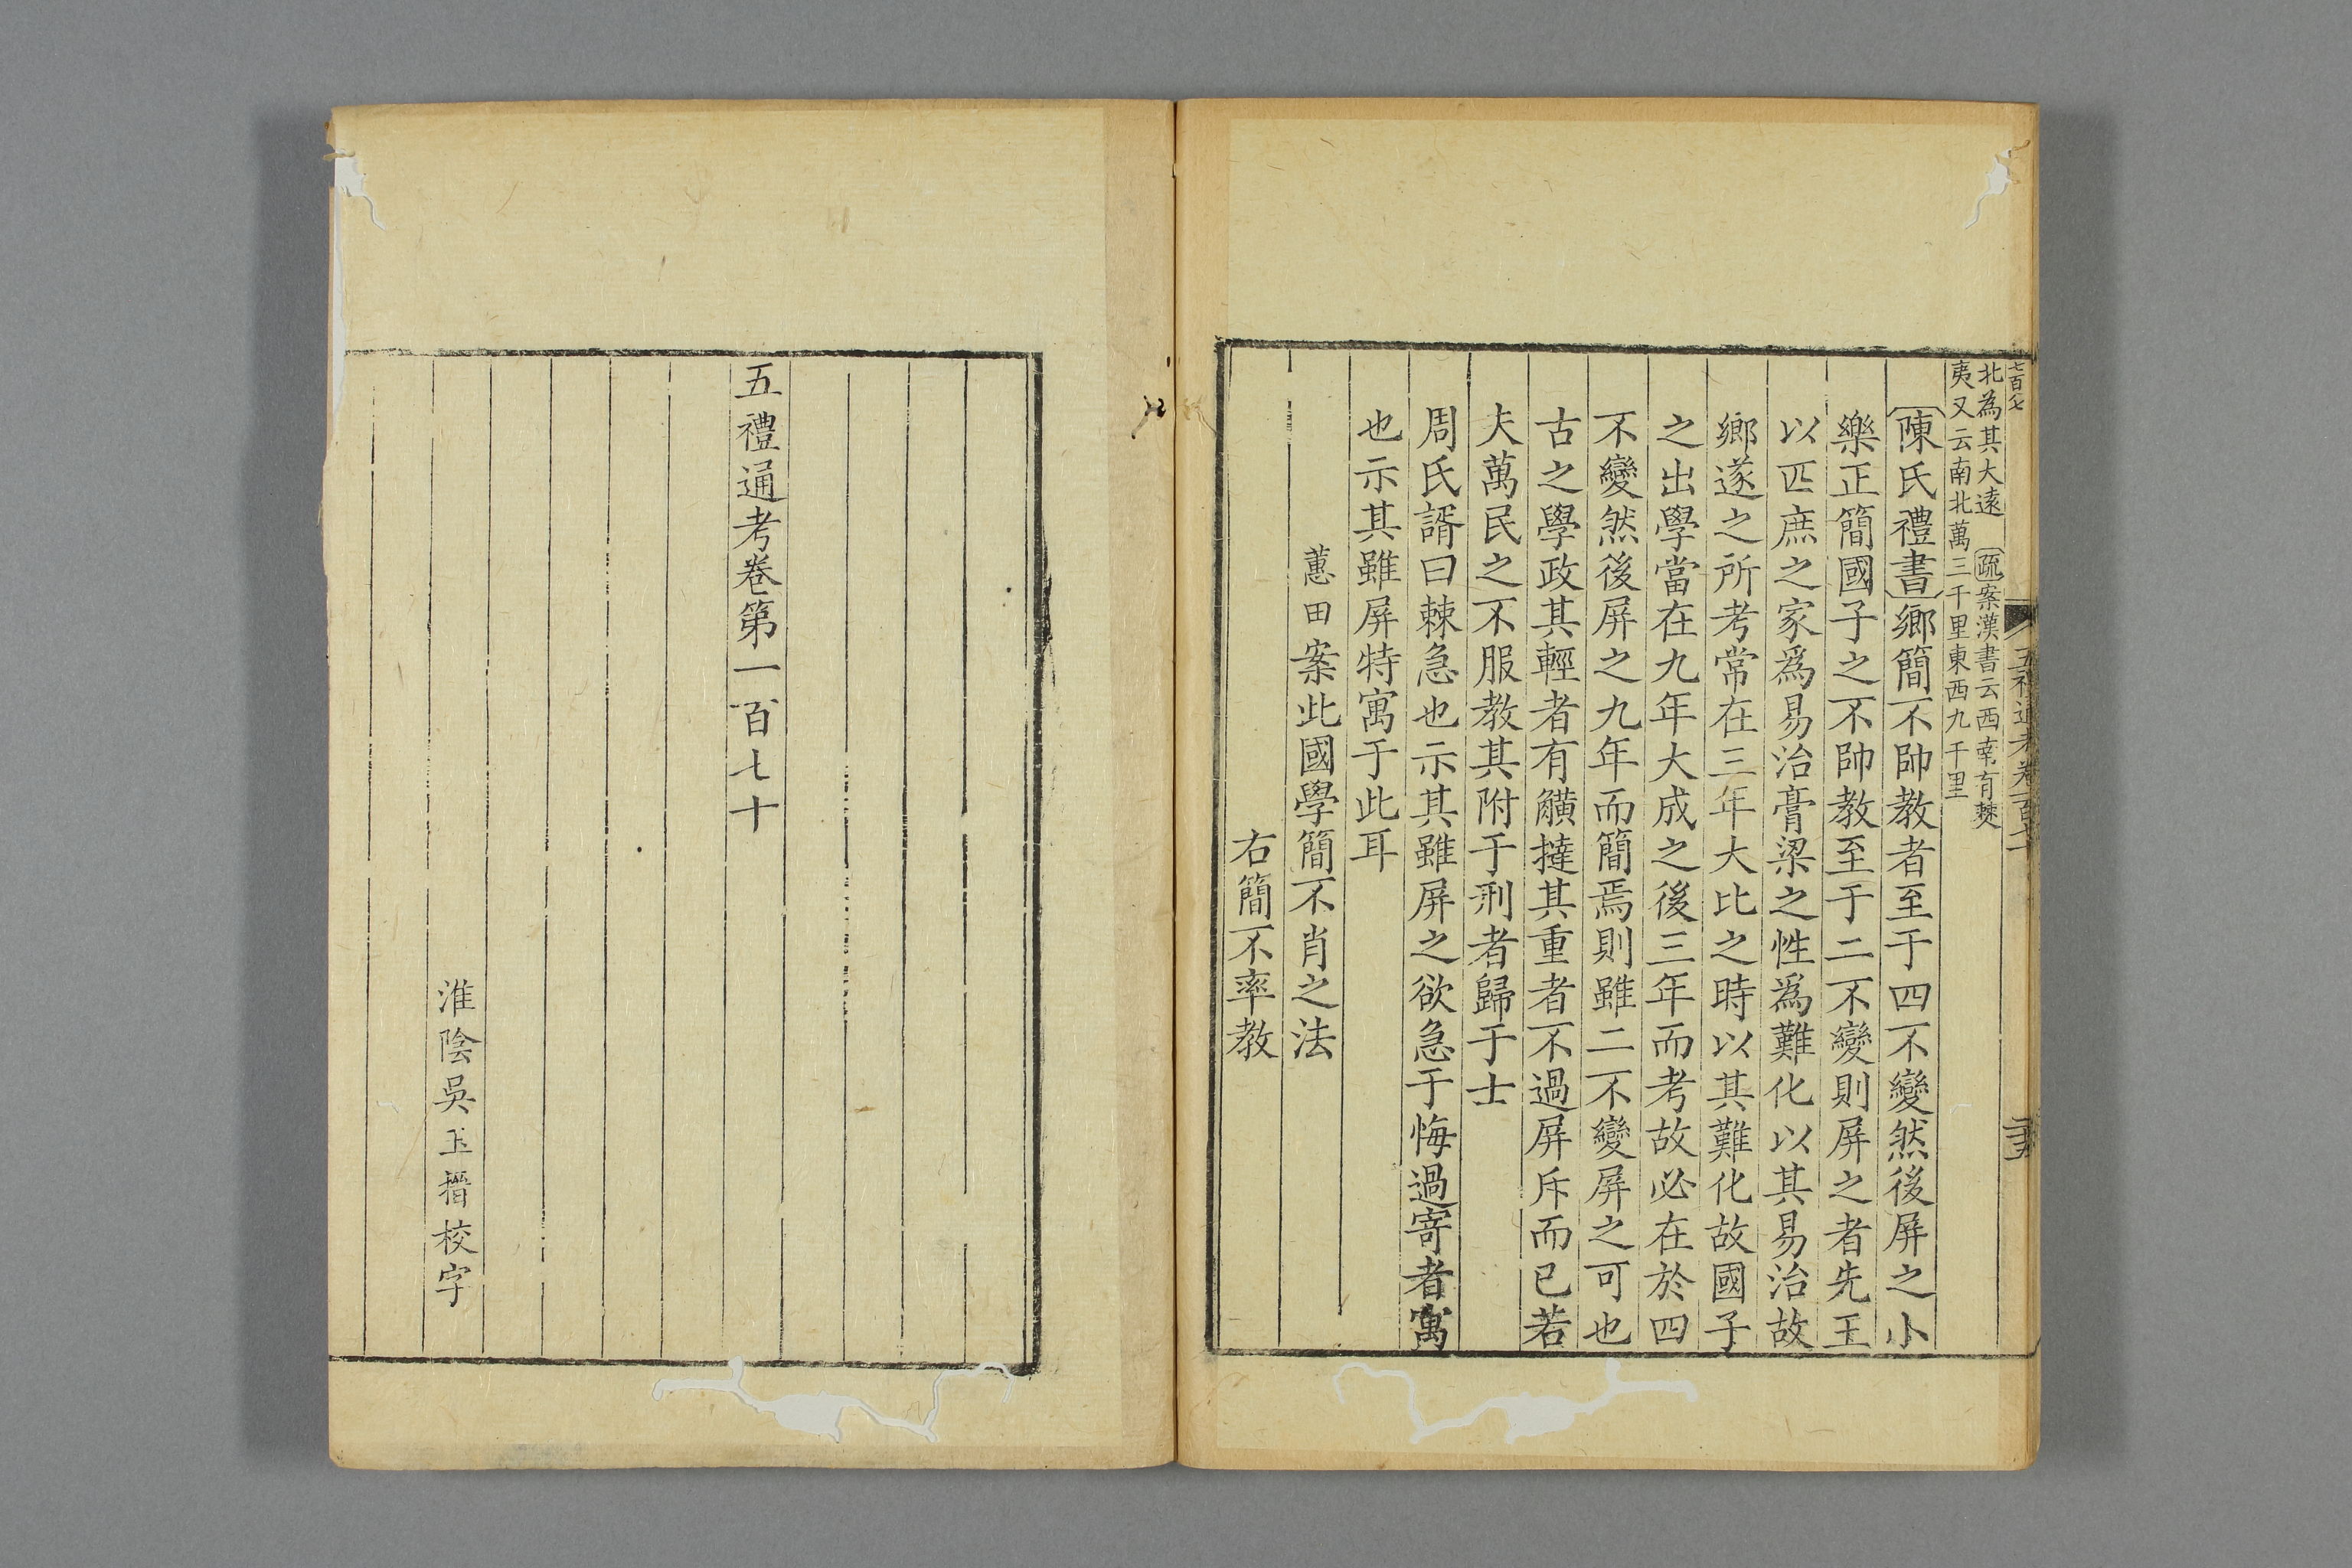 北為其大遠 疏案漢書云西南有僰
夷又云南北萬三千里東西九千里
陳氏禮書鄉簡不帥教者至于四不變然後屏之小
樂正簡國子之不帥教至于二不變則屏之者先王
以匹庶之家爲易治膏粱之性爲難化以其易治故
鄉遂之所考常在三年大比之時以其難化故國子
之出學當在九年大成之後三年而考故必在於四
不變然後屏之九年而簡焉則雖二不變屏之可也
古之學政其輕者有觵撻其重者不過屏斥而已若
夫萬民之不服教其附于刑者歸于士
周氏諝曰棘急也示其雖屏之欲急于悔過寄者寓
也示其雖屏特寓于此耳
蕙田案此國學簡不肖之法
右簡不率教
五禮通考卷第一百七十
淮陰吳玉搢校字